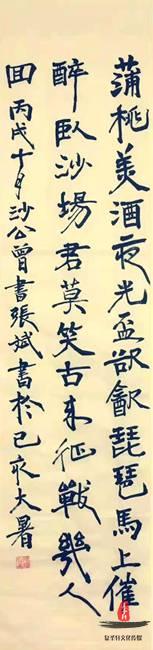 蒲桃美酒夜光盃欲㱃琵琶馬上催
醉臥沙場君莫笑古来征戰幾人
回丙戌十月沙公曾書張斌書於己亥大暑